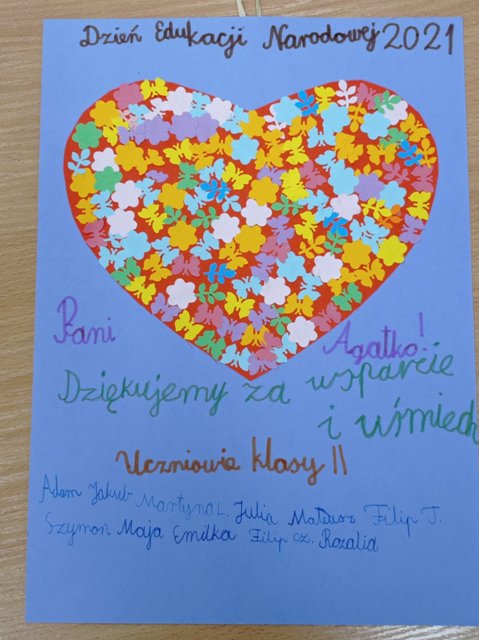 Dzień Edukacji Narodowej 2021
Pani Agatko!
Dziękujemy za wsparcie
i uśmiech
Uczniowie klasy II
Adam Jakub Martyna L. Julia Mateusz Filip T.
Szymon Maja Emilka Filip Cz. Rozalia